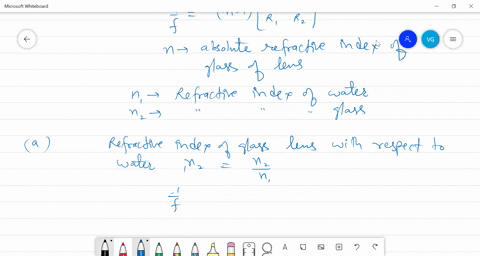 Microsoft Whiteboard
1/f = (n-1) [ R₁ R₂ ]
VG
n → absolute refractive index of
glass of lens
n₁ → Refractive index of water
n₂ → " " " glass
(a) Refractive index of glass lens with respect to
water ₁n₂ = n₂/n₁
1/f